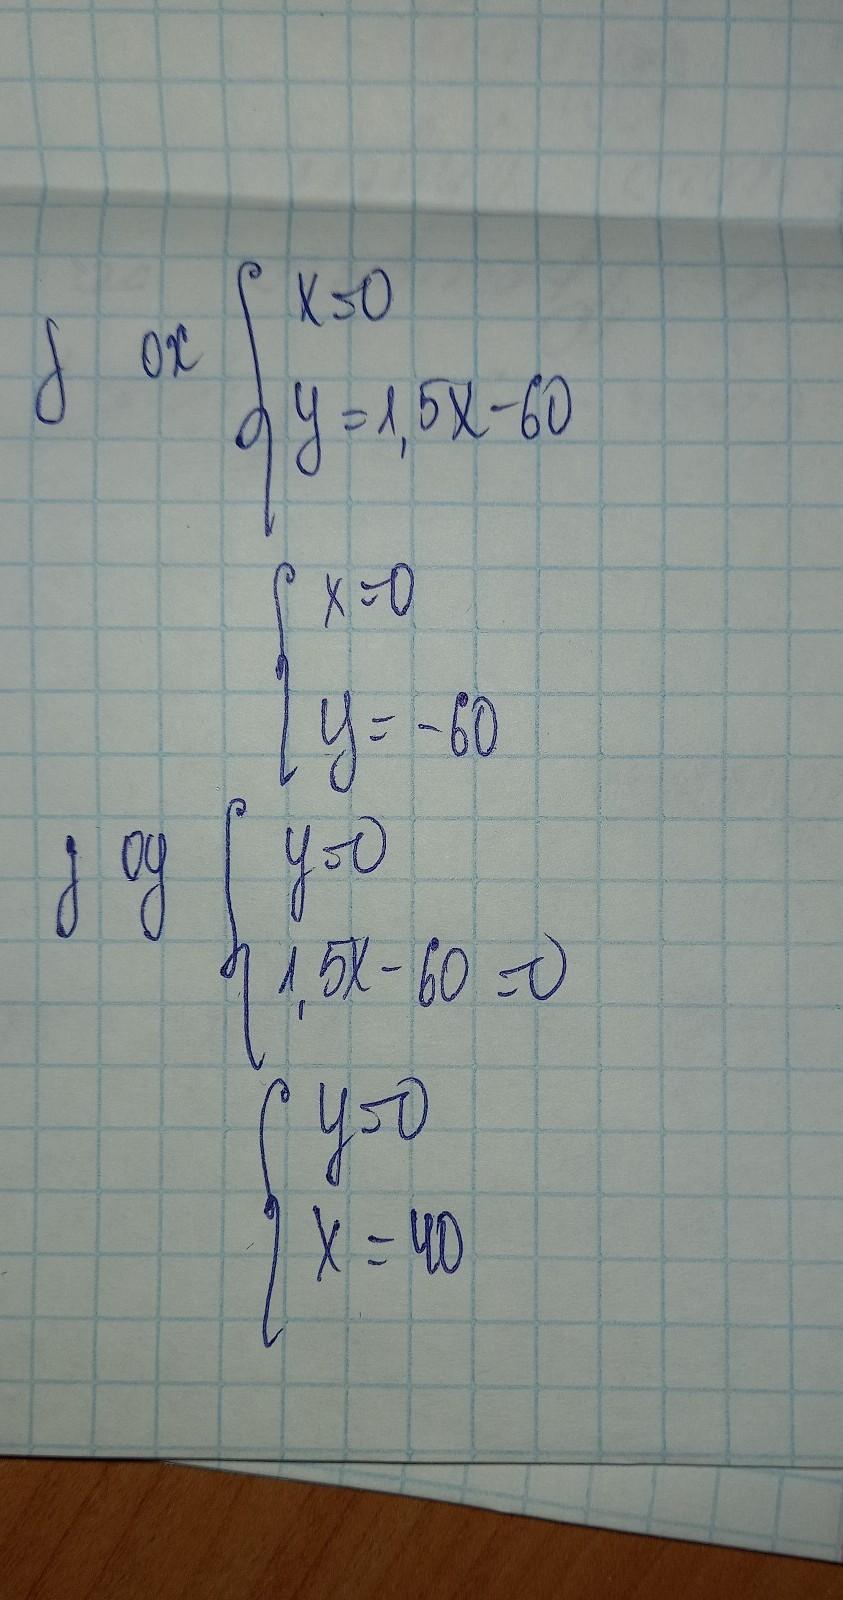 ох { x=0
y=1,5x-60
{ x=0
y=-60
оу { y=0
1,5x-60=0
{ y=0
x=40